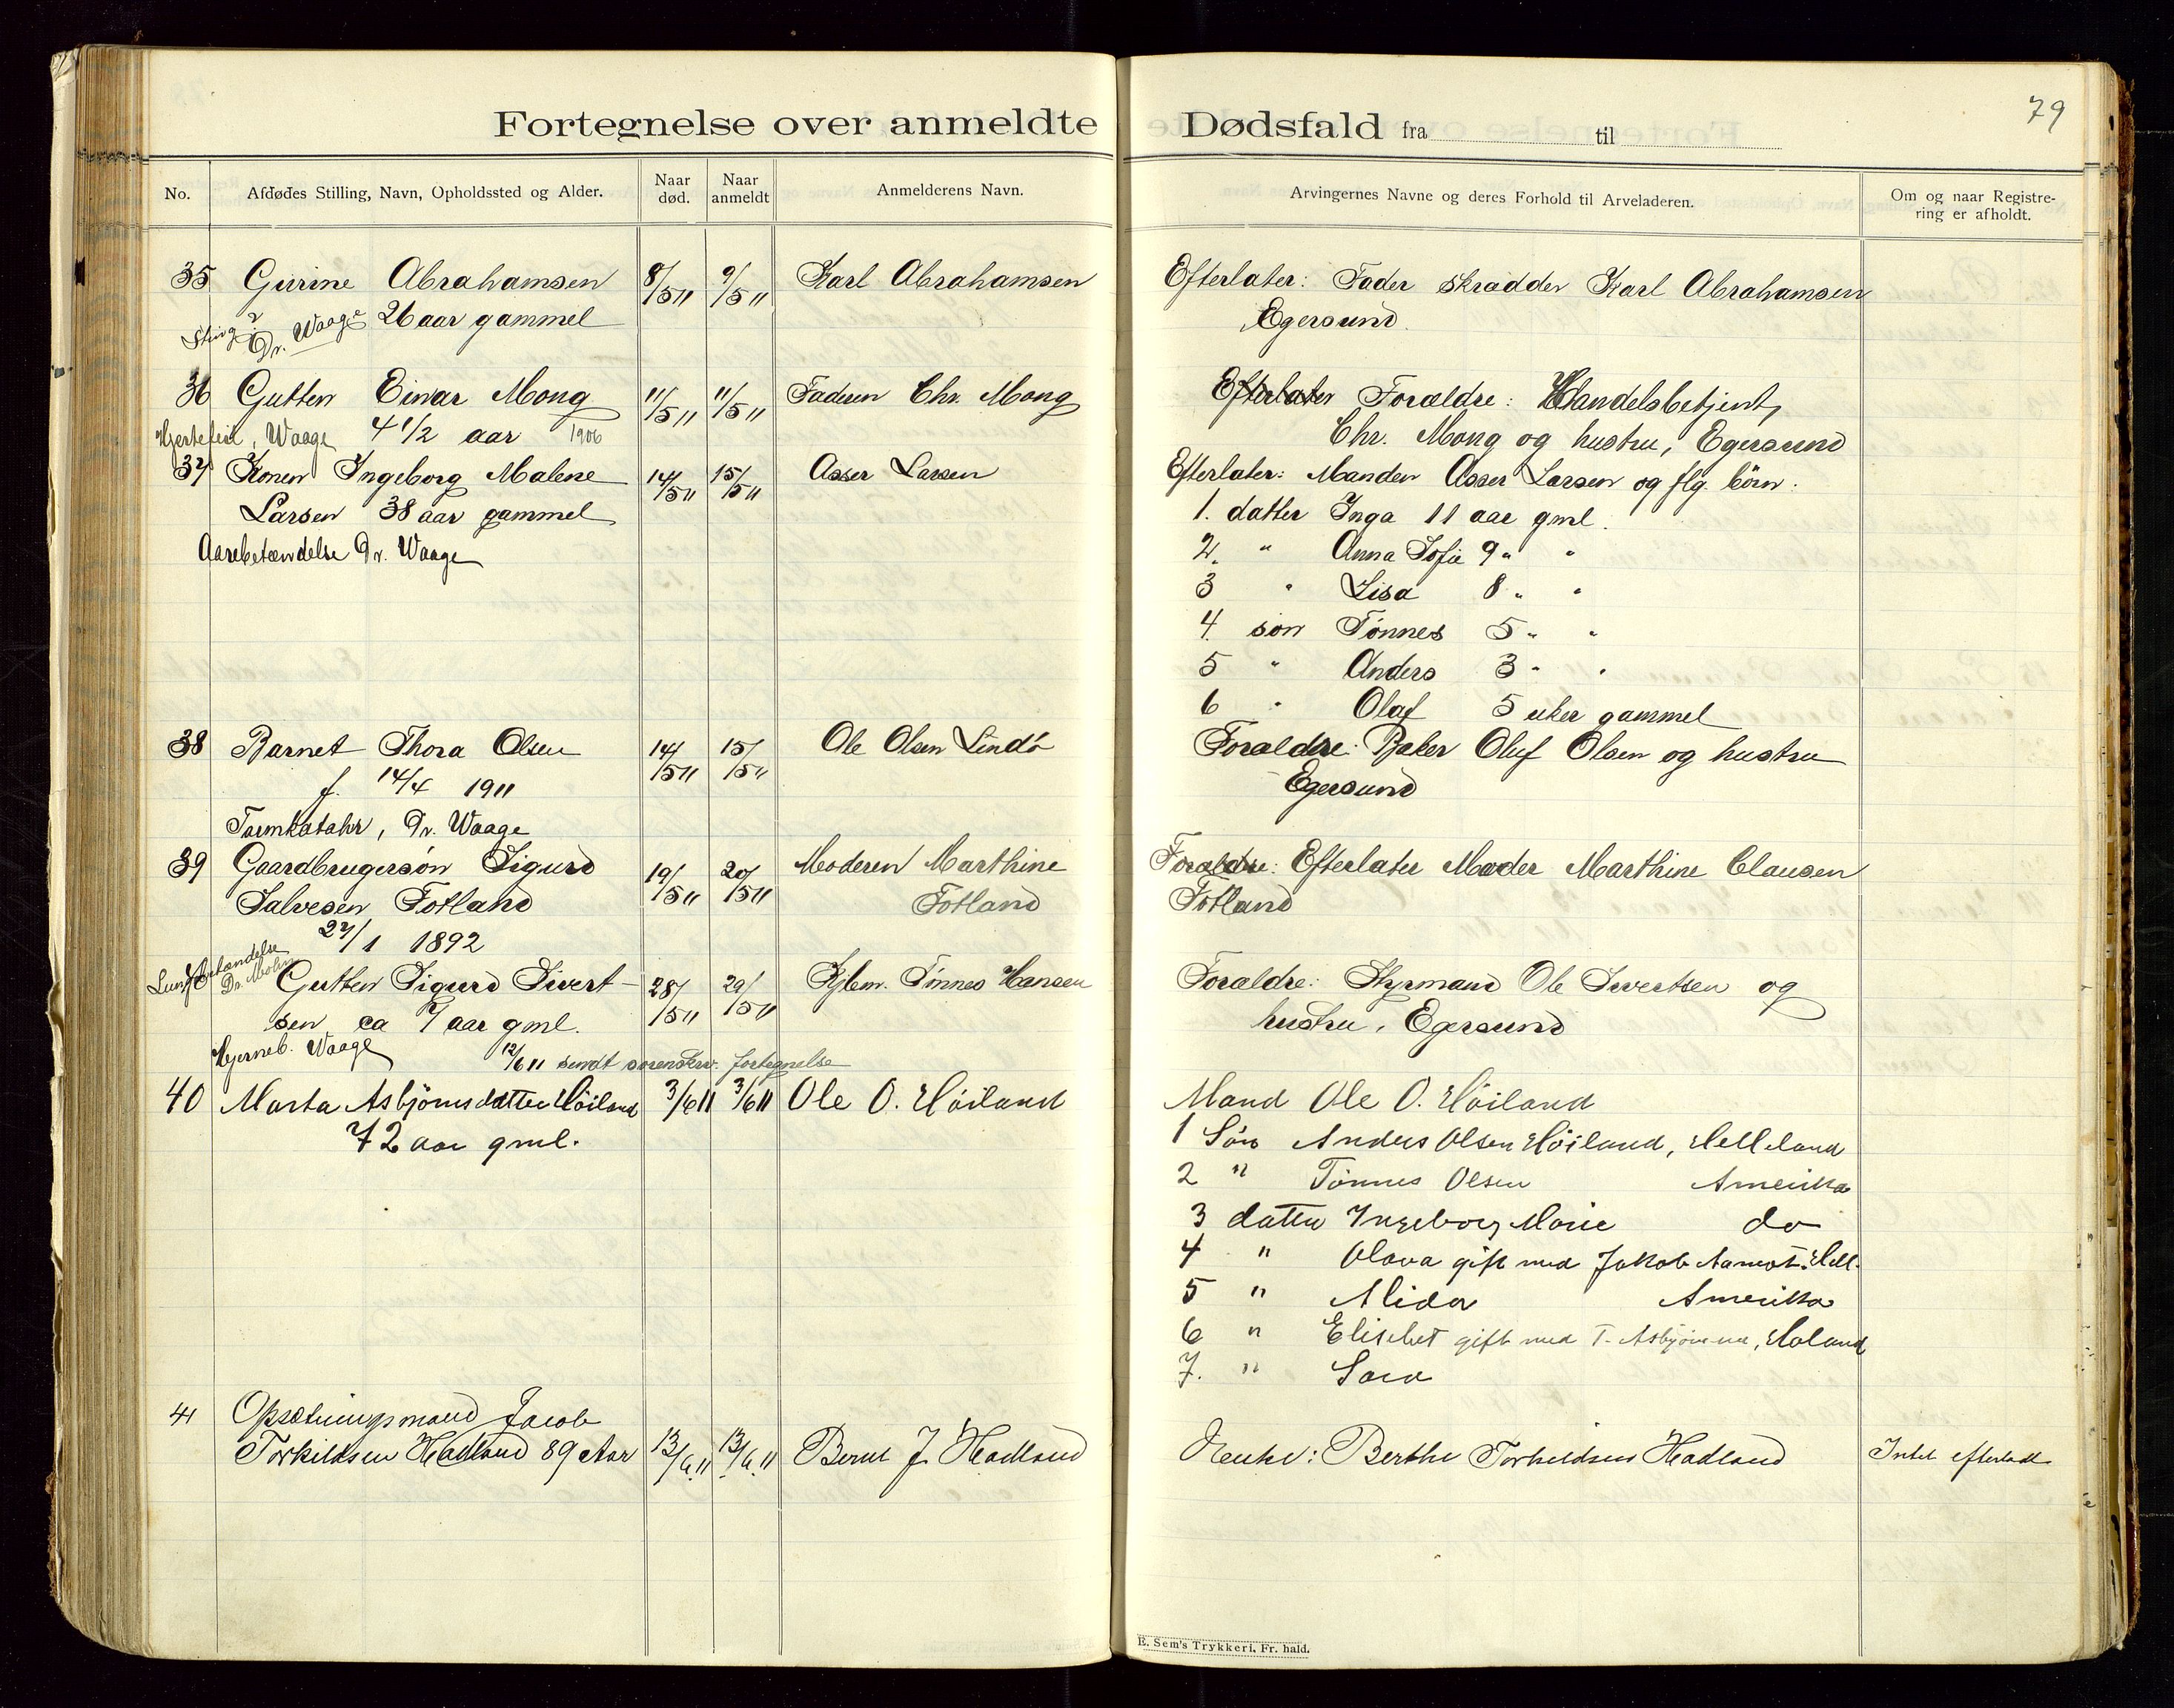 Fortegnelse over anmeldte Dødsfald fra til
79
No.
Afdødes Stilling, Navn, Opholdssted og Alder.
Naar død.
Naar anmeldt
Anmelderens Navn.
Arvingernes Navne og deres Forhold til Arveladeren.
Om og naar Registre-
ring er afholdt.
35 Gurine Abrahamsen 8/5 11 9/5 11 Karl Abrahamsen Efterlater: Fader skrædder Karl Abrahamsen
Dr. Waage 26 aar gammel Egersund.
36 Gutten Einar Mong 11/5 11 11/5 11 Faderen Chr. Mong Efterlater Forældre: Handelsbetjent
Hjertefeil, Waage 4 1/2 aar 1906 Chr. Mong og hustru, Egersund
37 Konen Ingeborg Malene 14/5 11 15/5 11 Asser Larsen Efterlater: Manden Asser Larsen og flg. börn:
Larsen 38 aar gammel 1. datter Inga 11 aar gml.
Aarebetændelse Dr. Waage 2. " Anna Sofie 9 " "
3 " Lisa 8 " "
4. sön Tönnes 5 " "
5 " Anders 3 " "
6 " Olaf 5 uker gammel
38 Barnet Thora Olsen 14/5 11 15/5 11 Ole Olsen Lindö Forældre: Baker Oluf Olsen og hustru
f. 14/4 1911 Egersund
Tarmkatahr, Dr. Waage
39 Gaardbrugersön Sigurd 19/5 11 20/5 11 Moderen Marthine Forældre: Efterlater Moder Marthine Clausen
Salvesen Fotland Fotland Fotland
27/1 1892
Lungebetændelse
Dr. Mohn
Gutten Sigurd Sivert- 28/5 11 29/5 11 Tönnes Hansen Forældre: Styrmand Ole Sivertsen og
sen ca 7 aar gml. hustru, Egersund
Hjerneb. Waage 12/6 11 sendt sorenskr. fortegnelse
40 Marta Asbjörnsdatter Höiland 3/6 11 3/6 11 Ole O. Höiland Mand Ole O. Höiland
72 aar gml. 1 Sön Anders Olsen Höiland, Helleland
2 " Tönnes Olsen Amerika
3 datter Ingeborg Marie do
4 " Olava gift med Jakob Aamot. Hell.
5 " Alida Amerika
6 " Elisebet gift med T. Asbjörnsen,
7. " Sara
41 Opsætningsmand Jacob
Torkildsen Hadland 89 Aar 13/6 11 13/6 11 Bernt J. Hadland Enke: Berthe Torkildsen Hadland Intet efterladt
E. Sem's Trykkeri, Fr. hald.